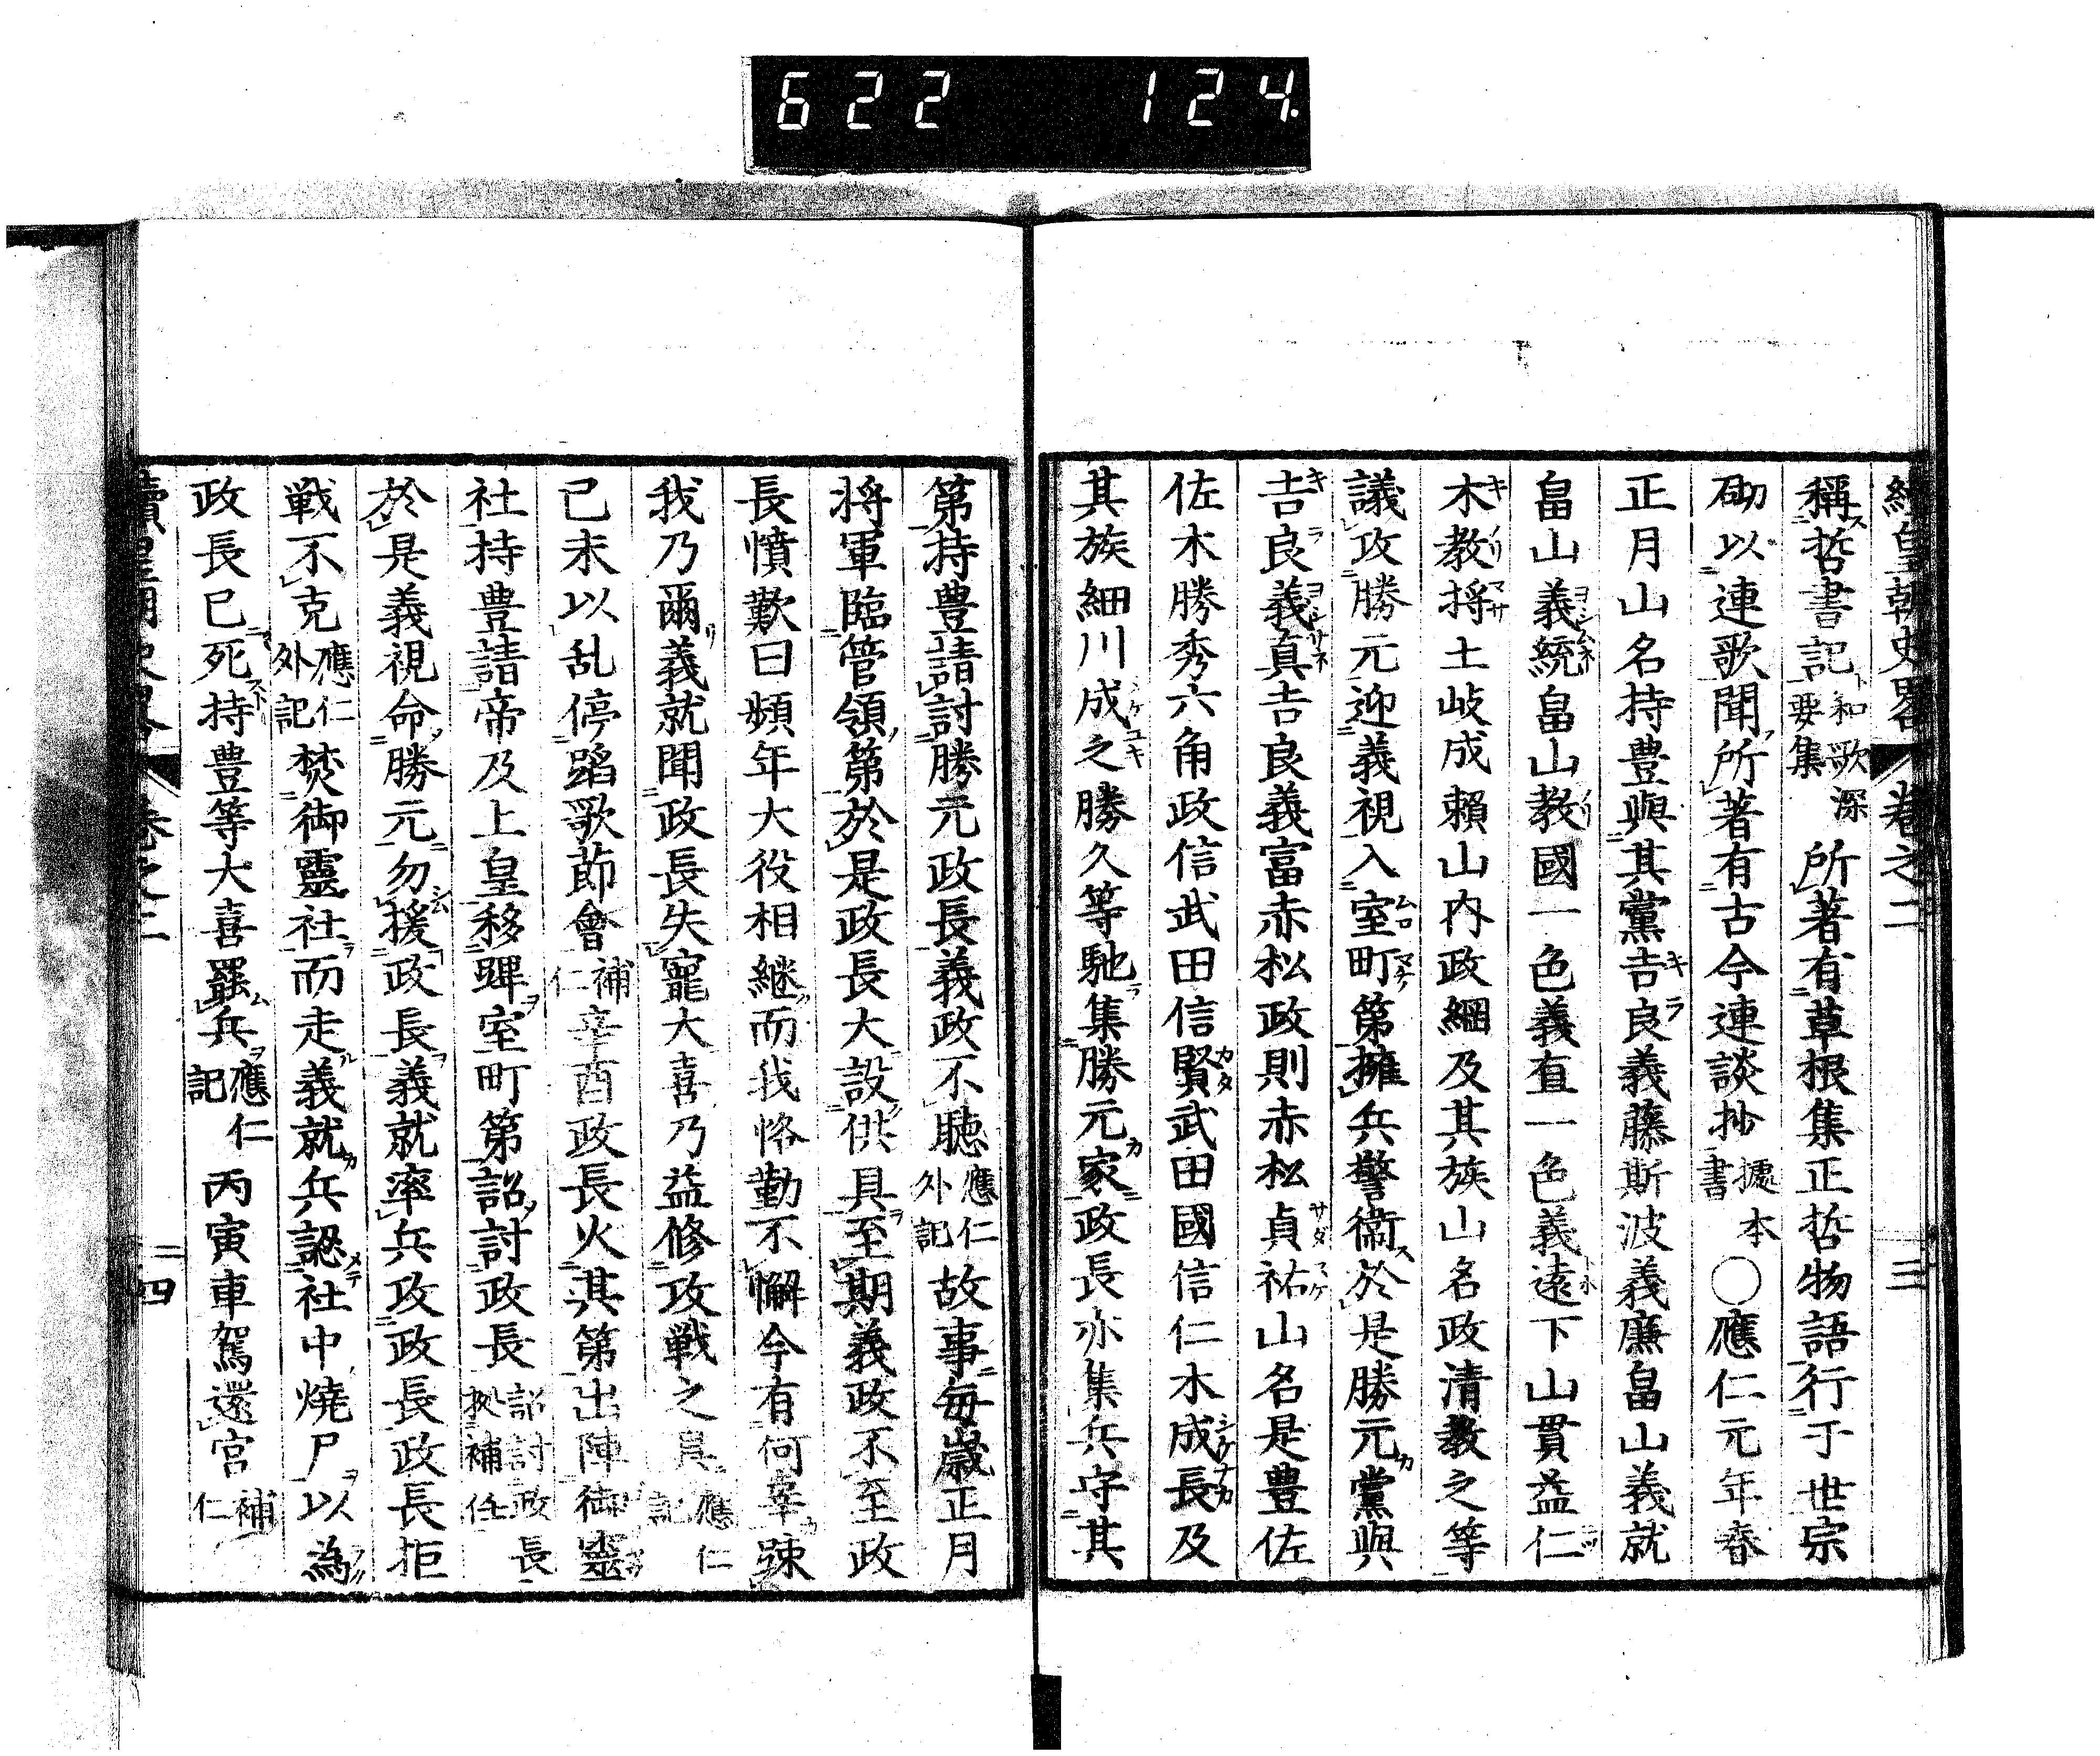 622 124
續皇朝史略 卷之二 三
稱哲書記和歌深要集所著有草根集正哲物語行于世宗
砌以連歌聞所著有古今連談抄據本書〇應仁元年春
正月山名持豊與其黨吉良義藤斯波義廉畠山義就
畠山義統畠山教國一色義直一色義遠下山貫益仁
木教将土岐成賴山内政綱及其族山名政清教之等
議攻勝元迎義視入室町第擁兵警衞於是勝元黨與
吉良義真吉良義富赤松政則赤松貞祐山名是豊佐
佐木勝秀六角政信武田信賢武田國信仁木成長及
其族細川成之勝久等馳集勝元家政長亦集兵守其
第持豊請討勝元政長義政不聴應仁外記故事毎歳正月
将軍臨管領第於是政長大設供具至期義政不至政
長憤歎曰頻年大役相継而我恪勤不懈今有何辜踈
我乃爾義就聞政長失寵大喜乃益修攻戦之具應仁記
己未以乱停蹈歌節會補仁辛酉政長火其第出陣御靈
社持豊請帝及上皇移蹕室町第詔討政長詔討政長拠補任
於是義視命勝元勿援政長義就率兵攻政長政長拒
戦不克應仁外記焚御靈社而走義就兵認社中燒尸以為
政長已死持豊等大喜罷兵應仁記丙寅車駕還宮補仁
續皇朝史略 卷之二 四